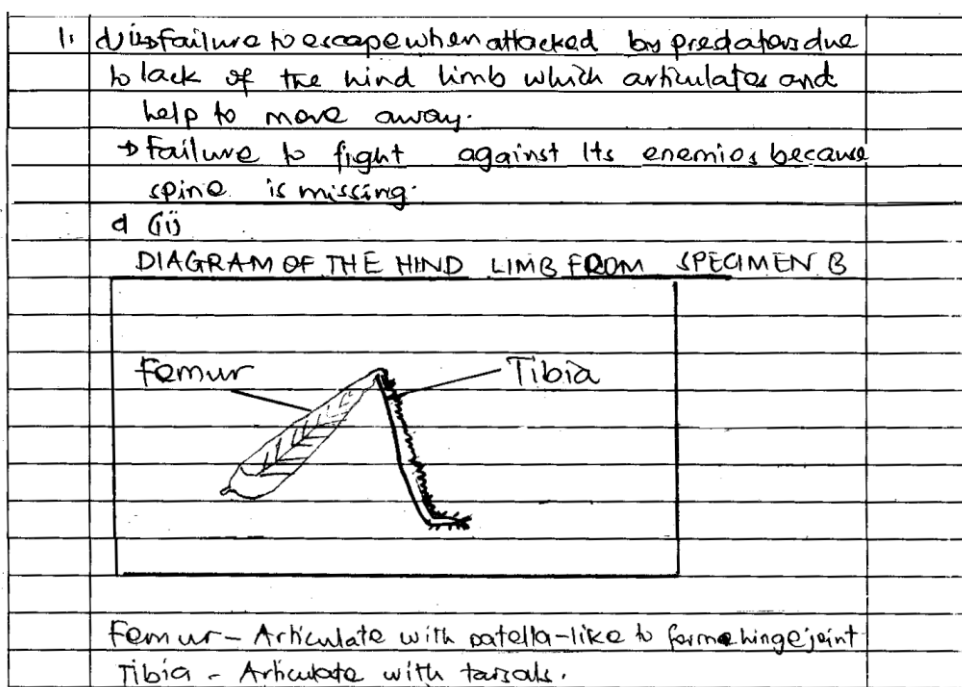 1. d (i) → failure to escape when attacked by predators due
to lack of the hind limb which articulates and
help to move away.
→ Failure to fight against Its enemies because
spine is missing.
d (ii)
DIAGRAM OF THE HIND LIMB FROM SPECIMEN B
Femur Tibia
Femur - Articulate with patella-like to form hinge joint
Tibia - Articulate with tarsals.